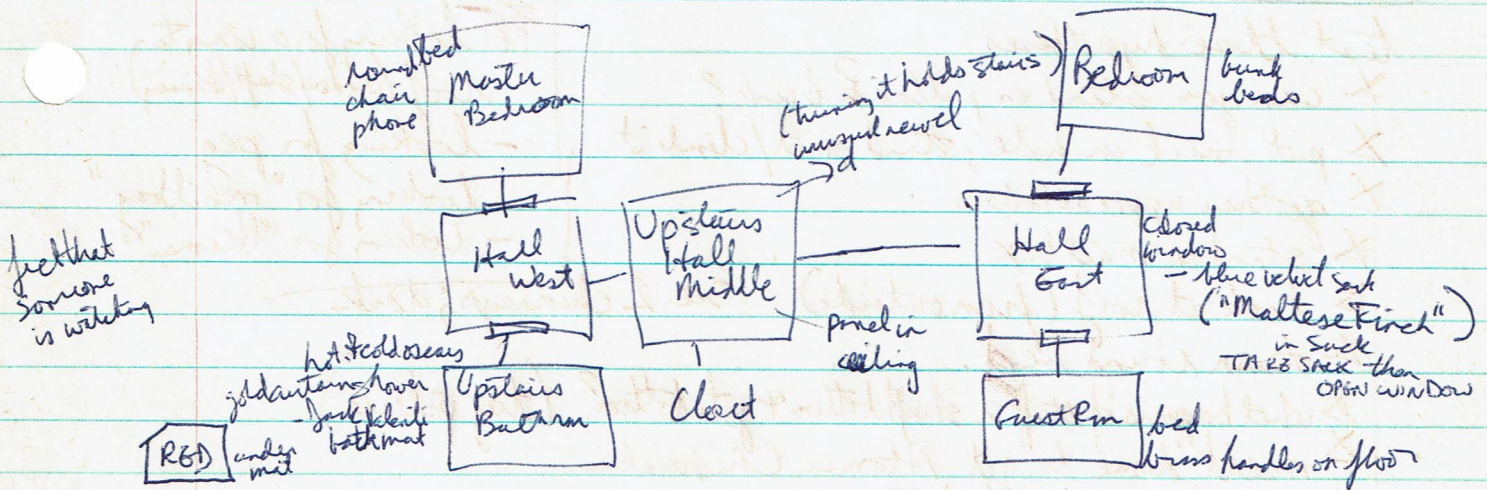 round bed
chair
phone
Master
Bedroom
(turning it holds stairs)
unusual newel
Bedroom
bunk
beds
feel that
someone
is watching
Hall
West
Upstairs
Hall
Middle
panel in
ceiling
Hall
East
closed
window
- blue velvet sack
("Maltese Finch")
in sack
TAKE SACK then
OPEN WINDOW
hot & cold
gold curtain shower
bathmat
RED
under
mat
Upstairs
Bathrm
Closet
Guest Rm
bed
brass handles on floor